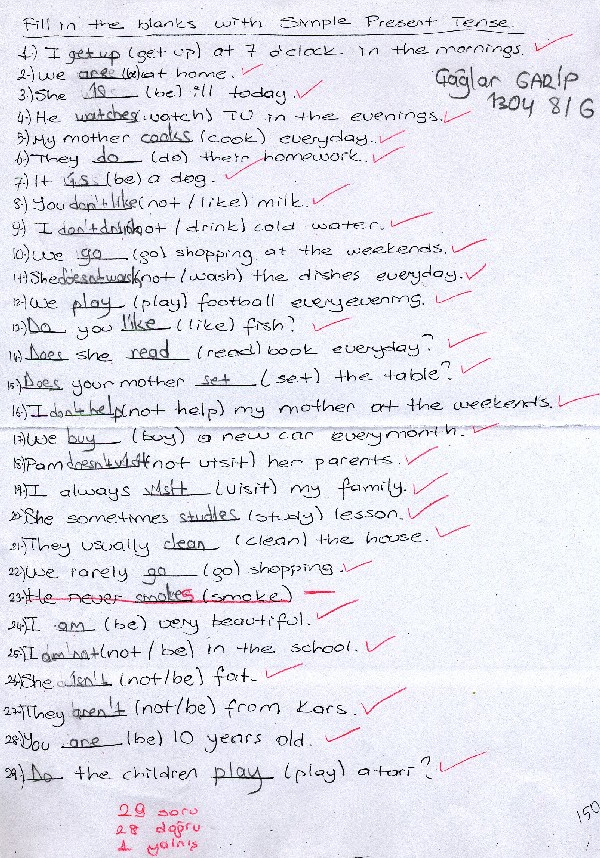 Fill in the blanks with Simple Present Tense
1-) I get up (get up) at 7 o'clock. in the mornings.
2-) We are (be) at home.
Çağlar GARİP
3-) She is (be) ill today.
1304 8/G
4-) He watches (watch) TV in the evenings.
5-) My mother cooks (cook) everyday.
6-) They do (do) their homework.
7-) It is (be) a dog.
8-) You don't like (not / like) milk.
9-) I don't drink (not / drink) cold water.
10-) We go (go) shopping at the weekends.
11-) She doesn't wash (not / wash) the dishes everyday.
12-) We play (play) football everyevening.
13-) Do you like (like) fish?
14-) Does she read (read) book everyday?
15-) Does your mother set (set) the table?
16-) I don't help (not help) my mother at the weekends.
17-) We buy (buy) a new car everymonth.
18-) Pam doesn't visit (not visit) her parents.
19-) I always visit (visit) my family.
20-) She sometimes studies (study) lesson.
21-) They usually clean (clean) the house.
22-) We rarely go (go) shopping.
23-) He never smokes (smoke)
24-) I am (be) very beautiful.
25-) I am not (not / be) in the school.
26-) She isn't (not/be) fat.
27-) They aren't (not/be) from Kars.
28-) You are (be) 10 years old.
29-) Do the children play (play) atari?
29 soru
28 doğru
1 yalnış
150